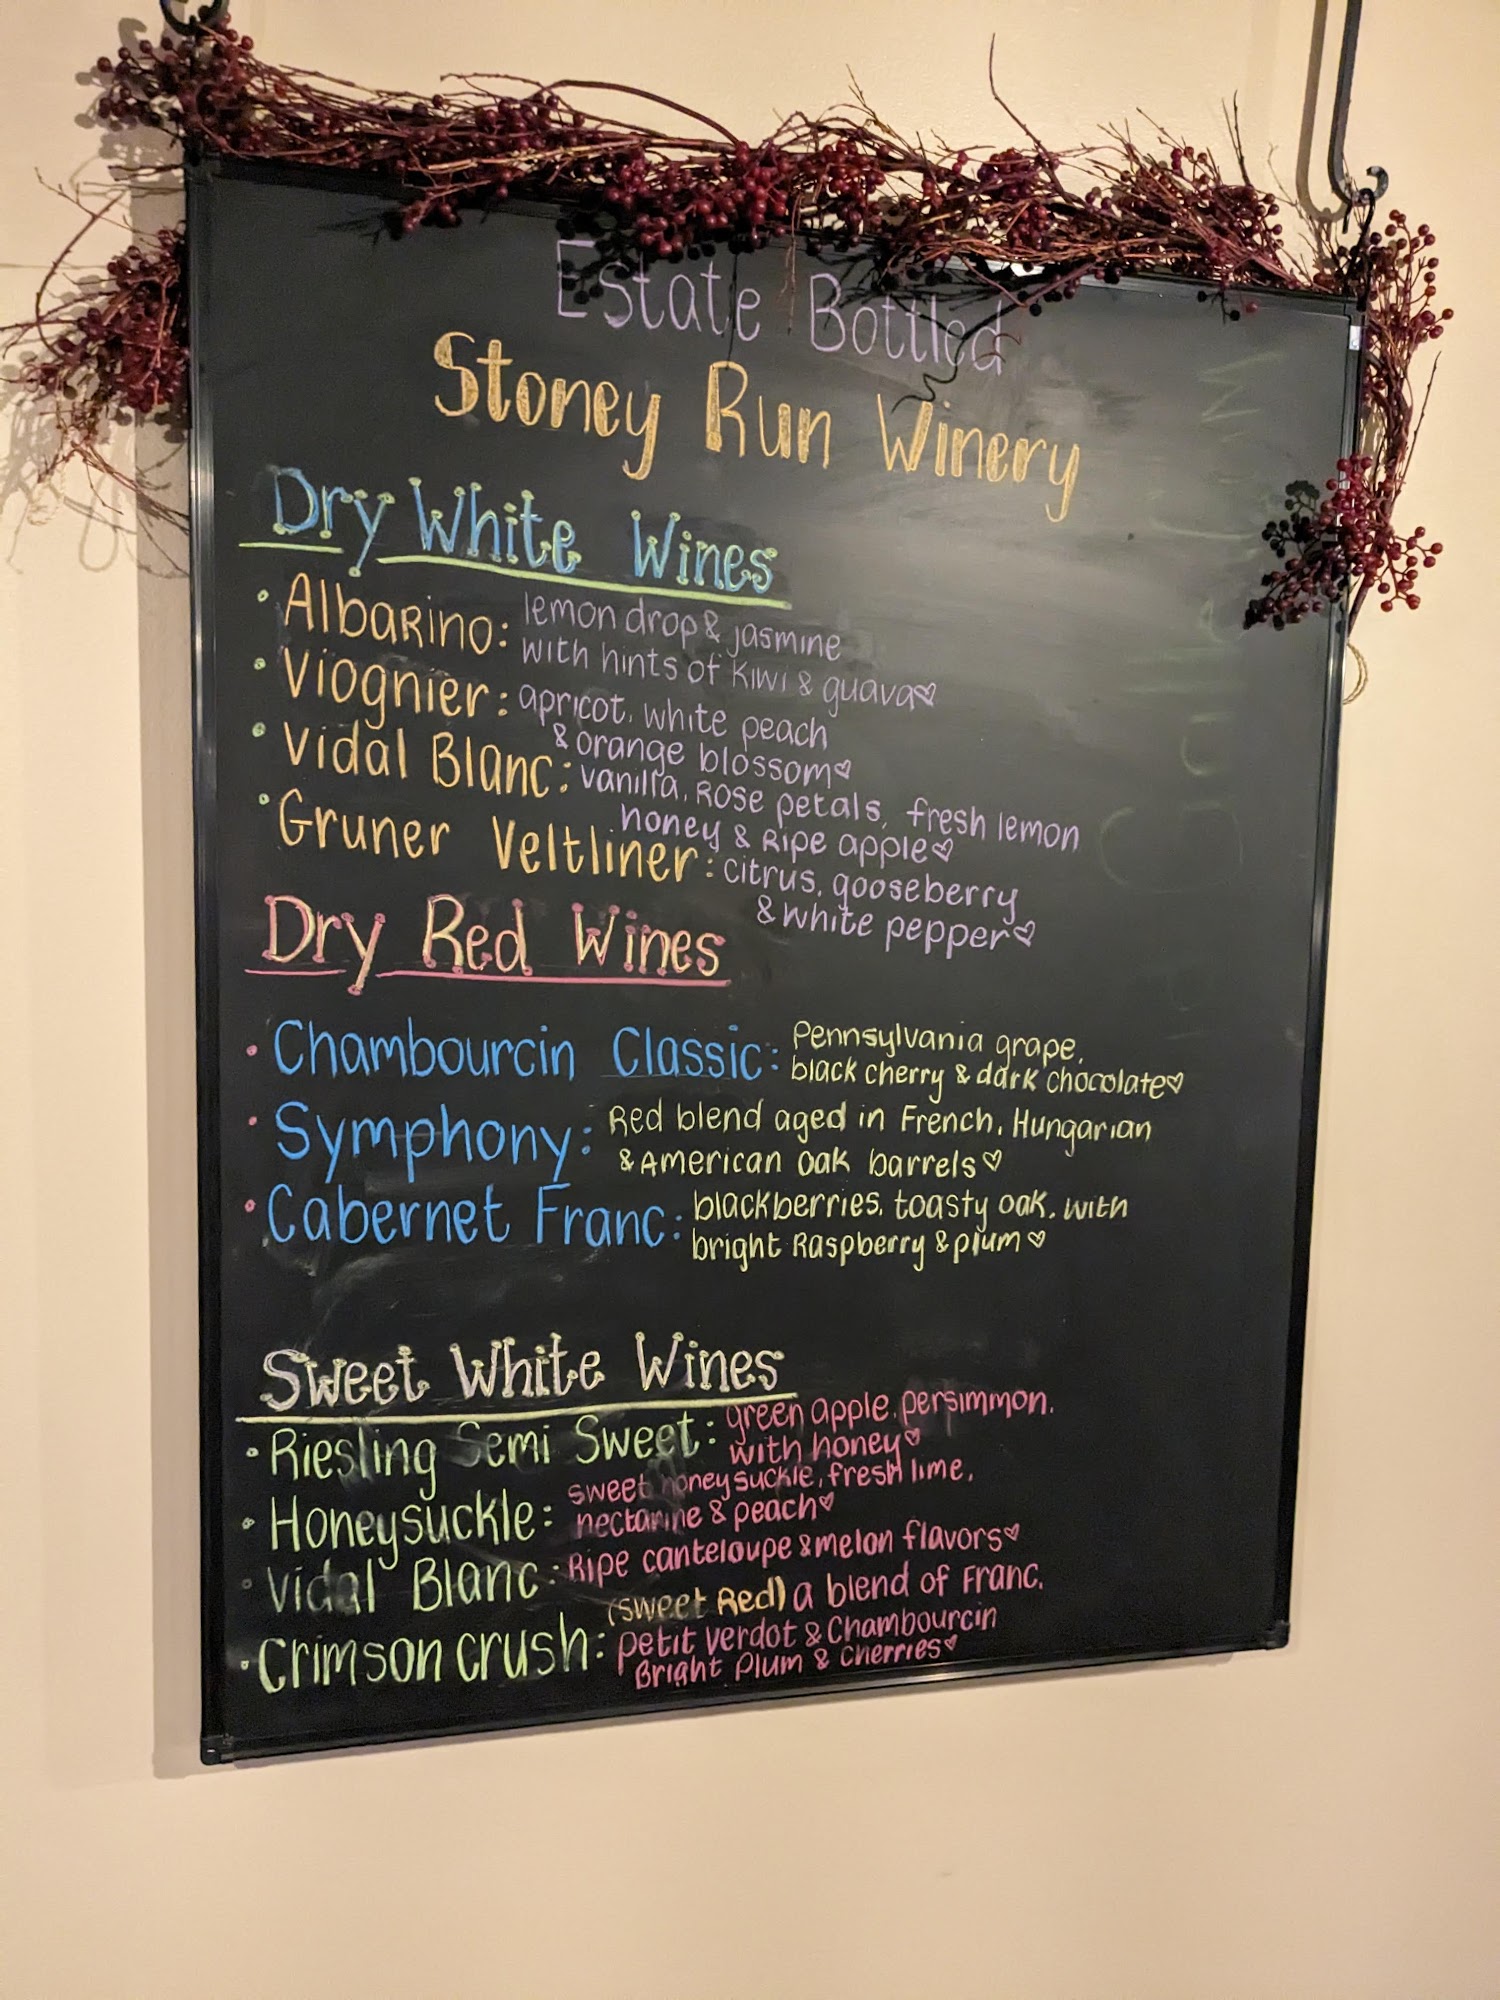 Estate Bottled
Stoney Run Winery
Dry White Wines
• Albarino: lemon drop & jasmine
with hints of kiwi & guava♡
• Viognier: apricot, white peach
& orange blossom♡
• Vidal Blanc: vanilla, Rose petals, fresh lemon
honey & Ripe apple♡
• Gruner Veltliner: citrus, gooseberry
& white pepper♡
Dry Red Wines
• Chambourcin Classic: Pennsylvania grape,
black cherry & dark chocolate♡
• Symphony: Red blend aged in French, Hungarian
& American oak barrels♡
• Cabernet Franc: blackberries, toasty oak, with
bright Raspberry & plum♡
Sweet White Wines
• Riesling Semi Sweet: green apple, persimmon,
with honey♡
• Honeysuckle: sweet honeysuckle, fresh lime,
nectarine & peach♡
• Vidal Blanc: Ripe canteloupe & melon flavors♡
• Crimson Crush: (sweet Red) a blend of Franc,
Petit Verdot & Chambourcin
Bright Plum & Cherries♡